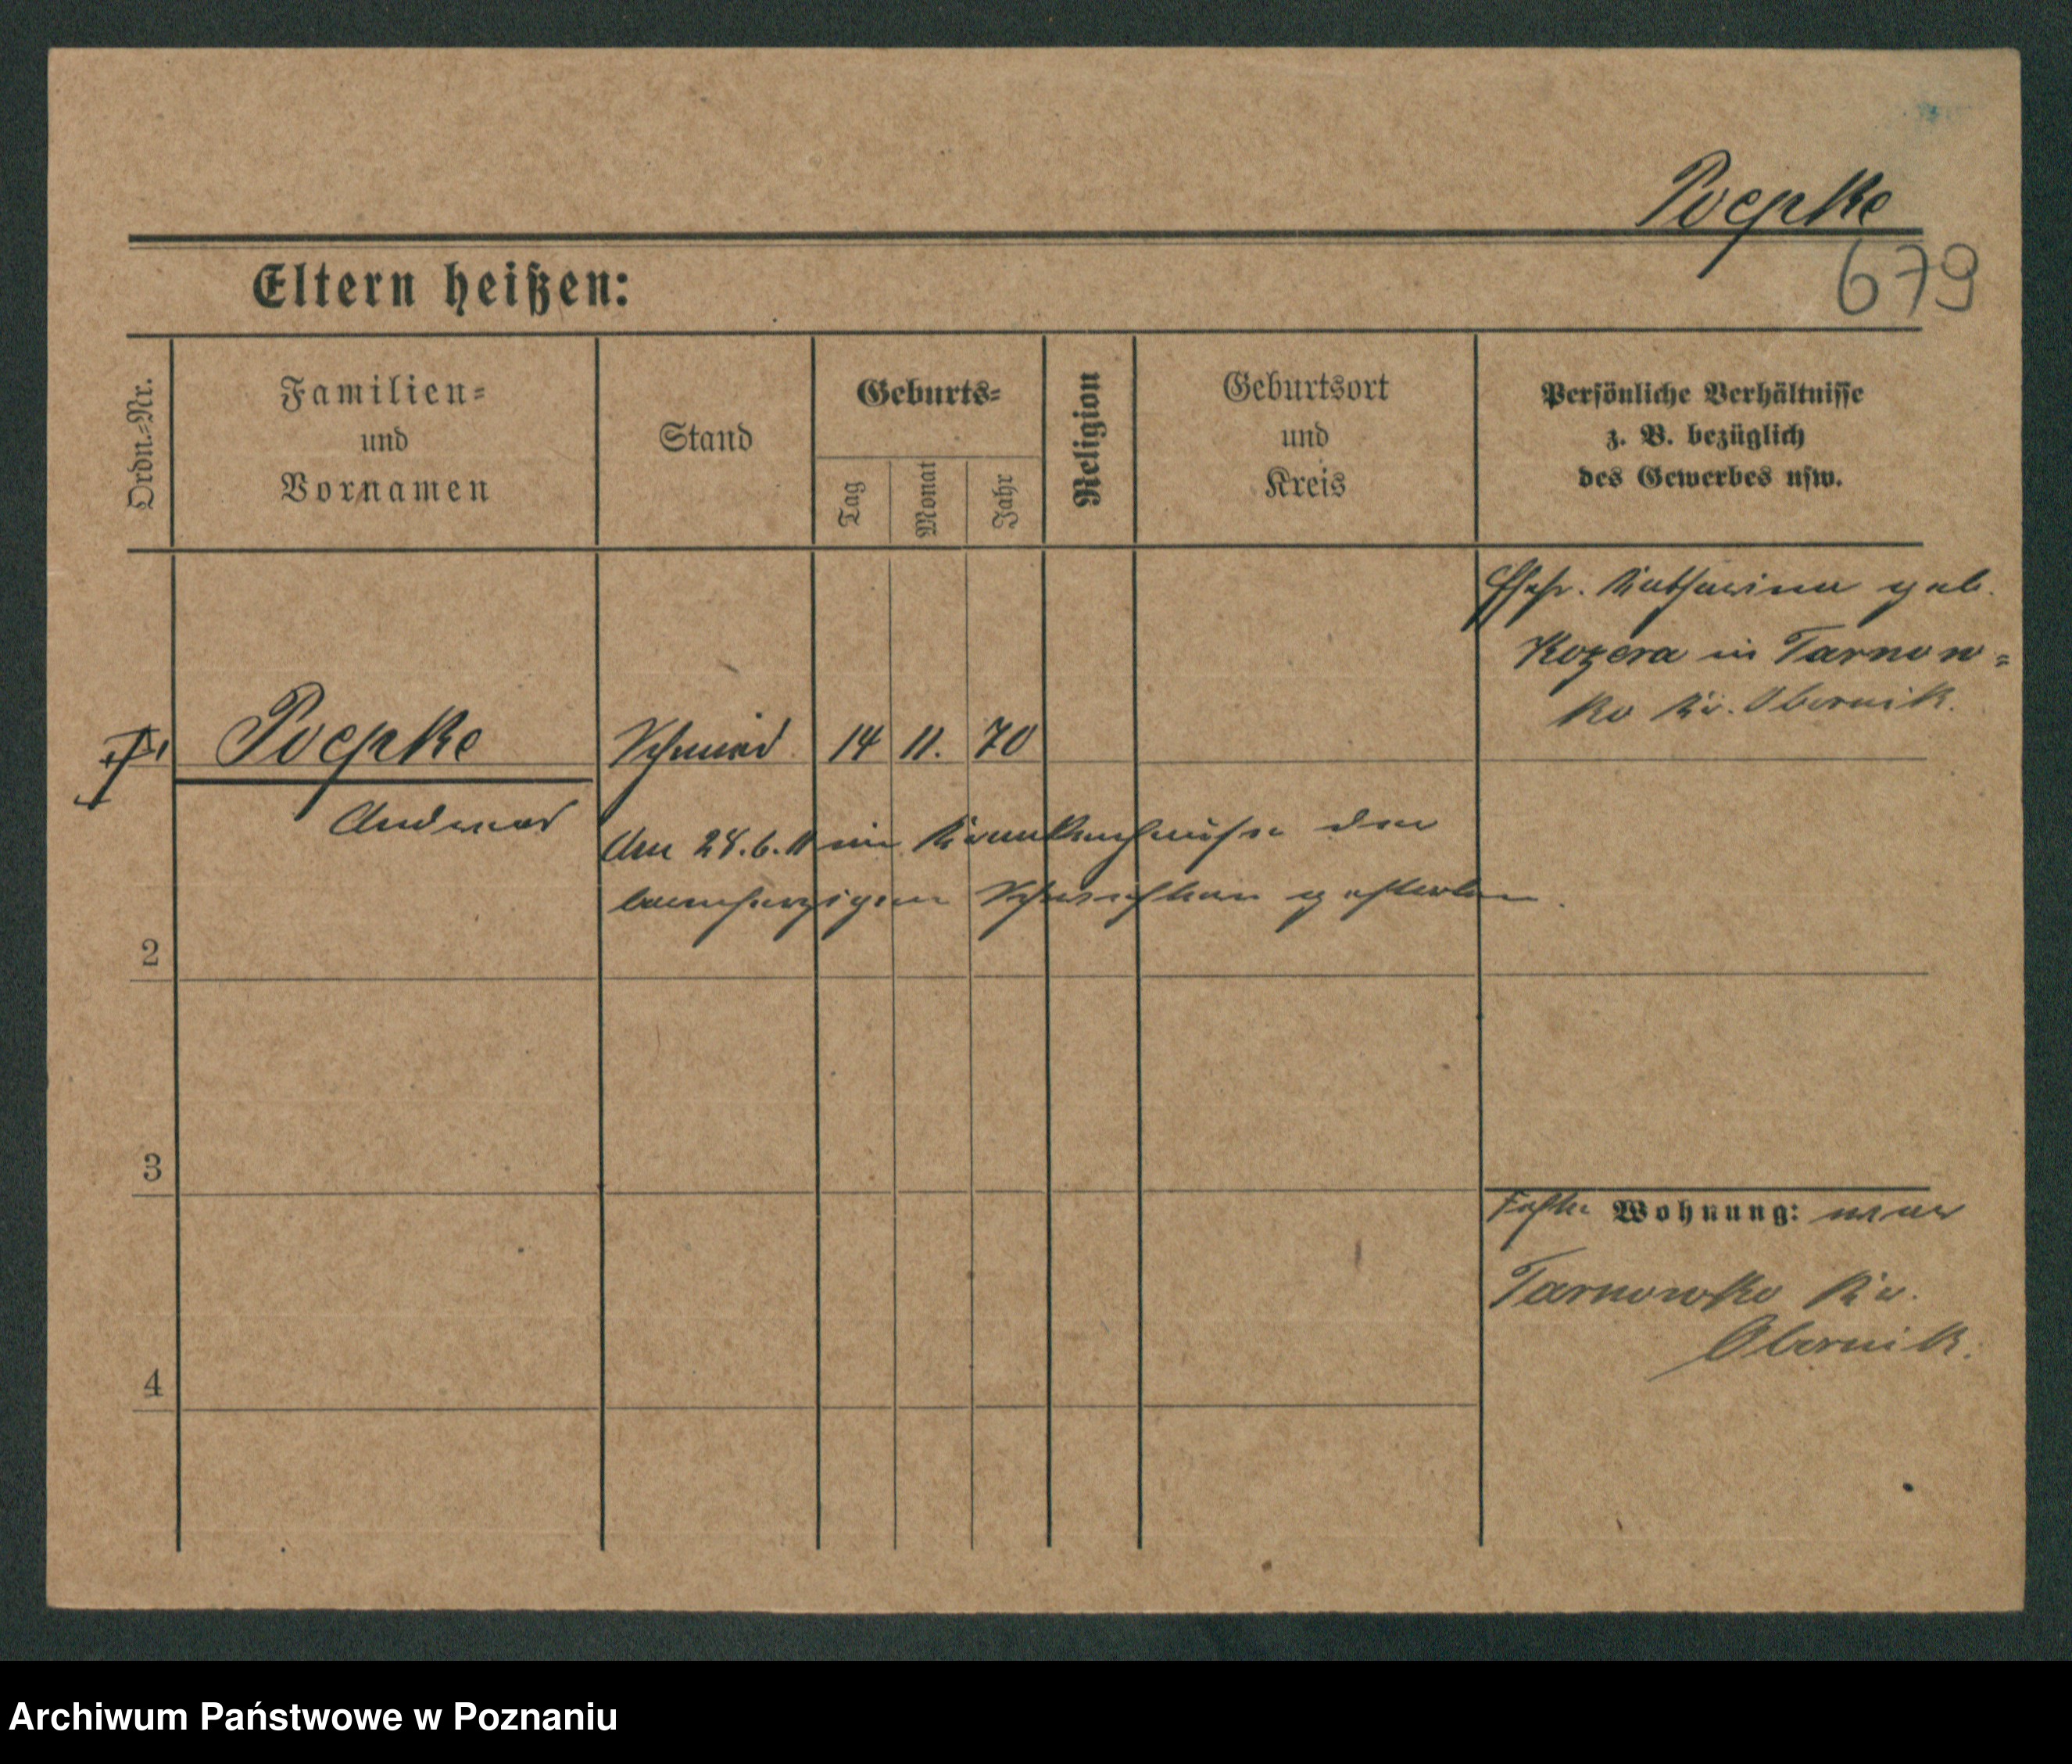 Poepke
679
Eltern heißen:
Ordn.-Nr.
Familien-
und
Vornamen
Stand
Geburts-
Tag
Monat
Jahr
Religion
Geburtsort
und
Kreis
Persönliche Verhältnisse
z. B. bezüglich
des Gewerbes usw.
Ehefr. Katharina geb.
Kozera in Tarnow-
ko Kr. Obornik.
1 Poepke Schmied 14 11. 70
Andreas
Am 24.6.11 im Krankenhause der
barmherzigen Schwestern gestorben.
2
3
4
Wohnung: war
Tarnowko Kr.
Obornik.
Archiwum Państwowe w Poznaniu